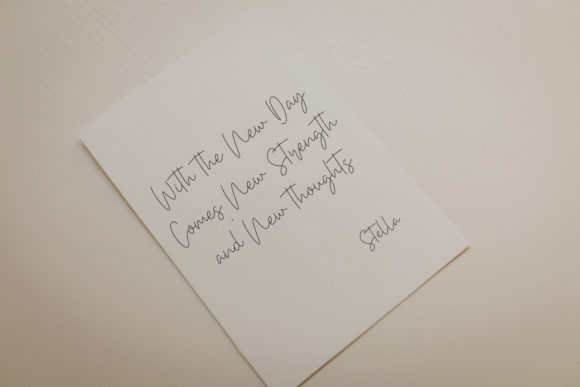 With the New Day
Comes New Strength
and New Thoughts
Stella.